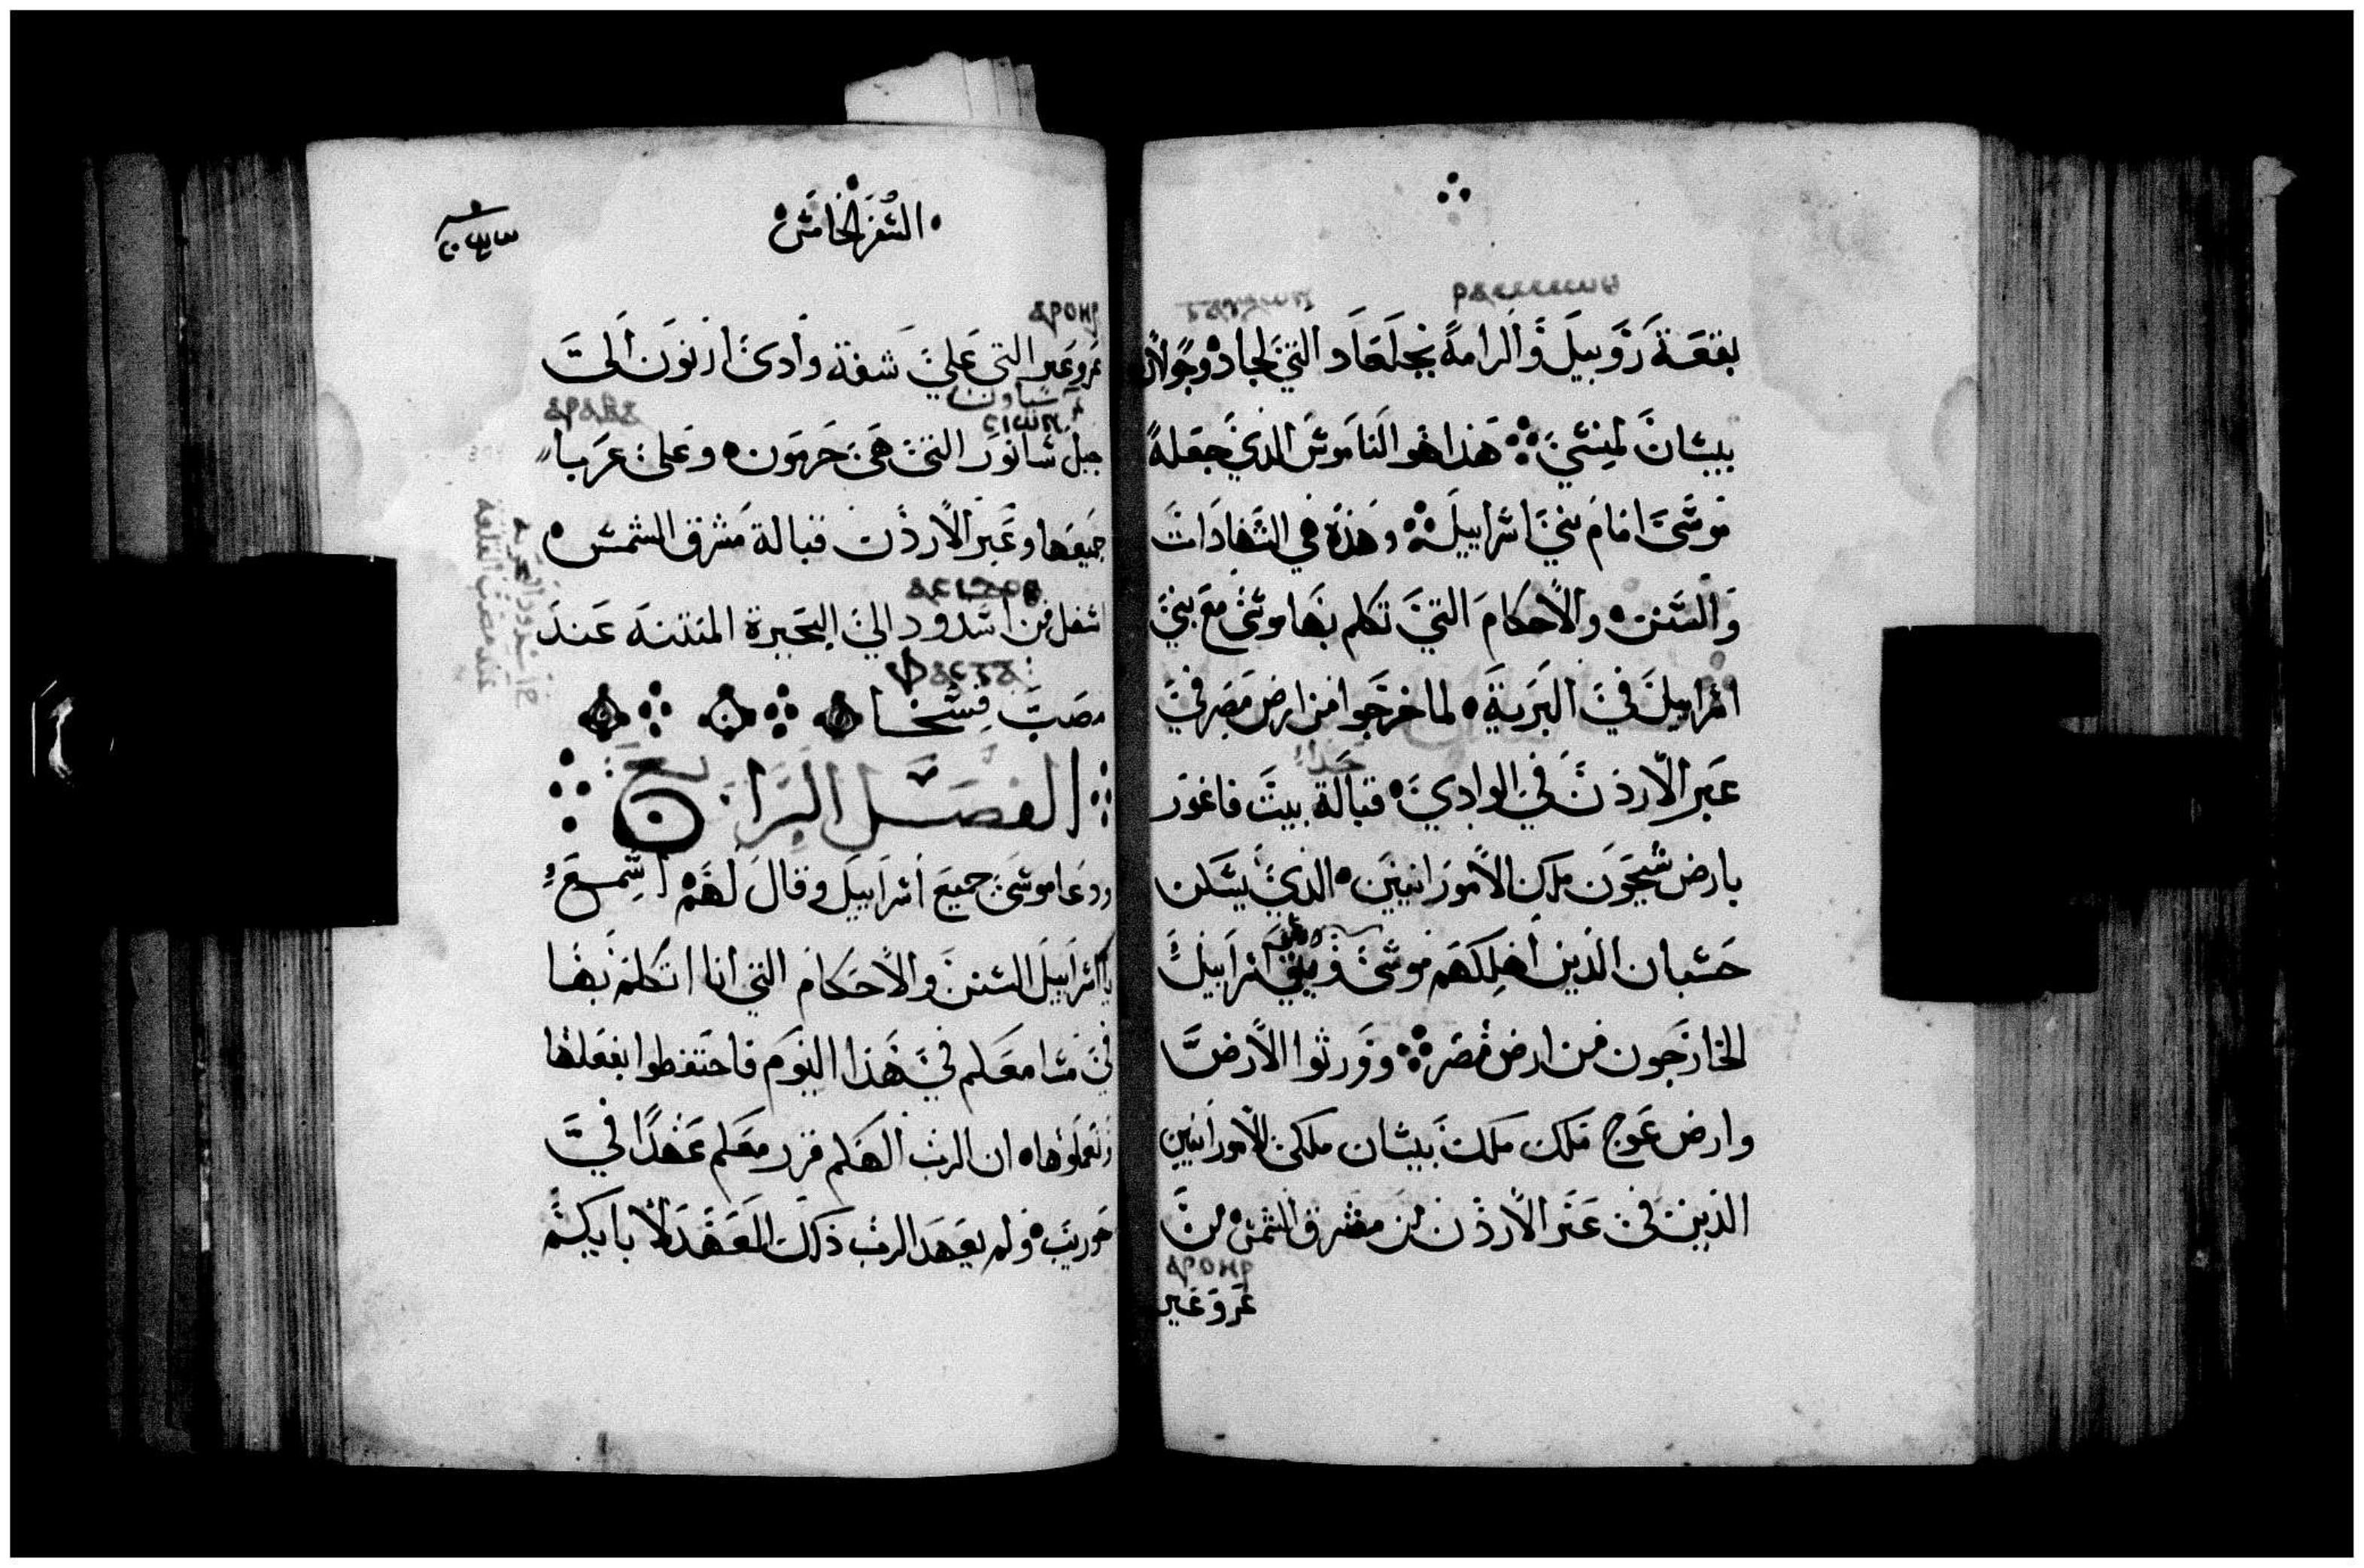 بقعة روبيل والرامة بجلعاد التي لجاد وجولان
بيسان لمنسي هذا هو الناموس الذي جعله
موسى امام بني اسراييل وهذه هي الشهادات
والسنن والاحكام التي تكلم بها موسى مع بني
اسراييل في البرية لما خرجوا من ارض مصر في
عبر الاردن في الوادي قبالة بيت فاغور
بارض سيحون ملك الامورانيين الذي يسكن
حسبان الذين اهلكهم موسى وبني اسراييل
الخارجون من ارض مصر وورثوا الارض
وارض عوج ملك بيسان ملكي الامورانيين
الذين في عبر الاردن من مشرق الشمس من
ⲁⲣⲟⲏⲣ
عروعير
السفر الخامس
ⲁⲣⲟⲏⲣ
عروعير التي على شفة وادي ارنون الى
جبل شانور التي هي حرمون وعلى عربا
جميعها وعبر الاردن قبالة مشرق الشمس
اسفل من اسدود الى البحيرة المنتنة عند
ⲫⲁⲥⲅⲁ
مصب فسخا
الفصل الرابع
ودعا موسى جميع اسراييل وقال لهم اسمع
يا اسراييل السنن والاحكام التي انا اتكلم بها
في مسامعكم في هذا اليوم فاحتفظوا بفعلها
وتعملوها ان الرب الهكم قرر معكم عهدا في
حوريب ولم يعهد الرب ذلك العهد لابايكم